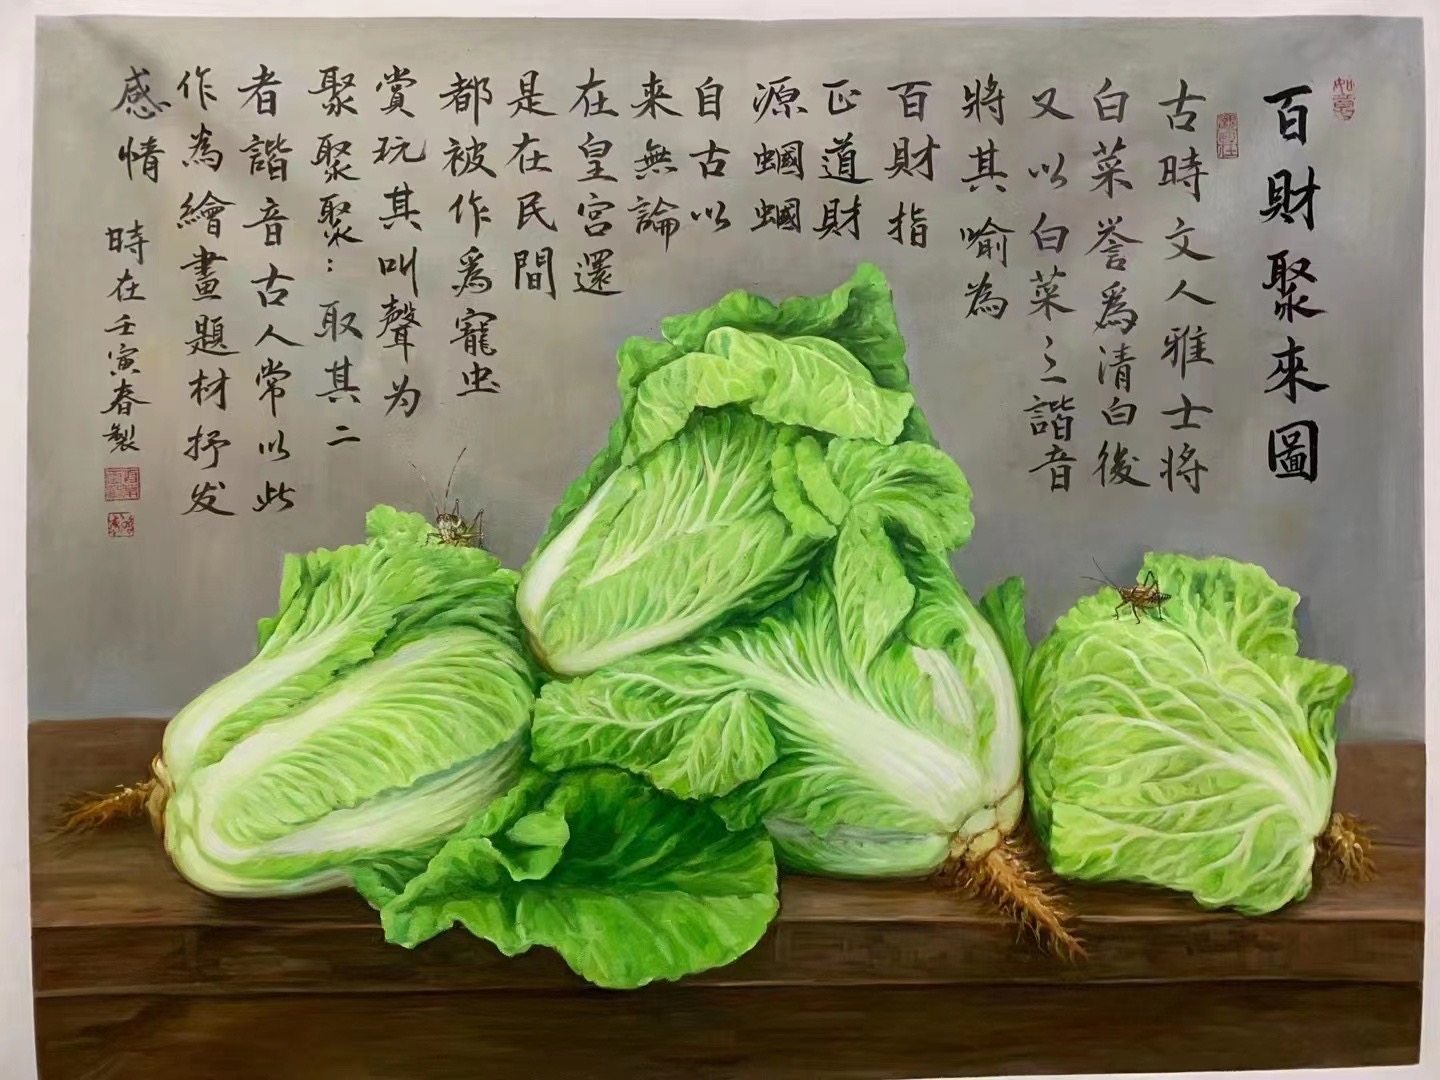 如意
百財聚來圖
古時文人雅士将
白菜誉爲清白後
又以白菜之諧音
將其喻為
百財指
正道財
源蟈蟈
自古以
来無論
在皇宮還
是在民間
都被作爲寵虫
賞玩其叫聲为
聚聚聚：取其二
者諧音古人常以此
作為繪畫題材抒发
感情
時在壬寅春製